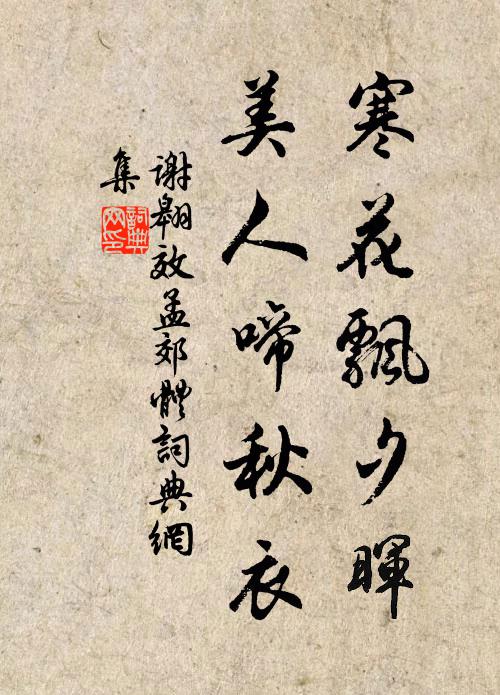 寒花飄夕暉
美人啼秋衣
謝翱效孟郊體詞典網
集
詞典網印